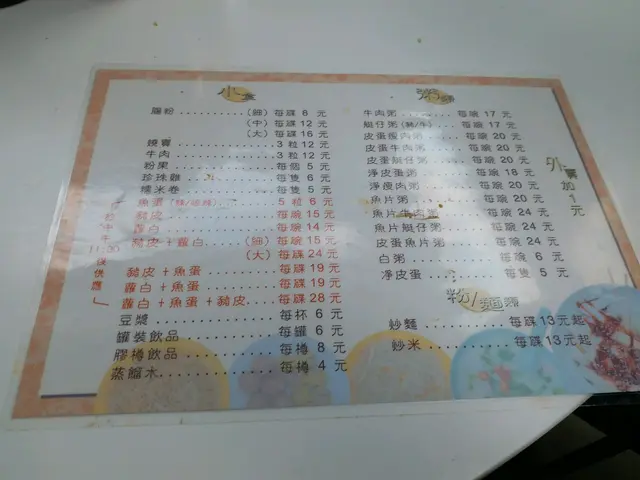 小食
腸粉 (細) 每碟 6 元
(中) 每碟 12 元
(大) 每碟 16 元
燒賣 3 粒 12 元
牛肉 3 粒 12 元
粉果 每個 5 元
珍珠雞 每隻 6 元
糯米卷 每隻 5 元
魚蛋 5 粒 6 元
豬皮 每碗 15 元
蘿白 每碗 14 元
豬皮 + 蘿白 (細) 每碗 15 元
(大) 每碟 24 元
豬皮 + 魚蛋 每碟 19 元
蘿白 + 魚蛋 每碟 19 元
蘿白 + 魚蛋 + 豬皮 每碟 28 元
豆漿 每杯 6 元
罐裝飲品 每罐 6 元
膠樽飲品 每樽 8 元
蒸餾水 每樽 4 元
粥
牛肉粥 每碗 17 元
艇仔粥 每碗 17 元
皮蛋瘦肉粥 每碗 20 元
皮蛋牛肉粥 每碗 20 元
皮蛋艇仔粥 每碗 20 元
淨皮蛋粥 每碗 18 元
淨瘦肉粥 每碗 20 元
魚片粥 每碗 20 元
魚片牛肉粥 每碗 24 元
魚片艇仔粥 每碗 24 元
皮蛋魚片粥 每碗 24 元
白粥 每碗 6 元
淨皮蛋 每隻 5 元
外賣加1元
粉/麵類
炒麵 每碟13元起
炒米 每碟13元起